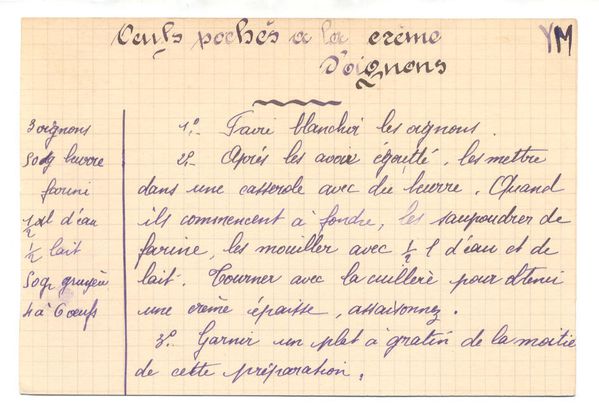 Oeufs pochés à la crème
d'oignons
YM
3 oignons
50g beurre
farine
½ l d'eau
½ lait
50gr gruyère
4 à 6 oeufs
1º- Faire blanchir les oignons.
2º- Après les avoir égoutté, les mettre
dans une casserole avec du beurre. Quand
ils commencent à fondre, les saupoudrer de
farine, les mouiller avec ½ l d'eau et de
lait. Tourner avec la cuillère pour obtenir
une crème épaisse, assaisonnez.
3º- Garnir un plat à gratin de la moitié
de cette préparation.